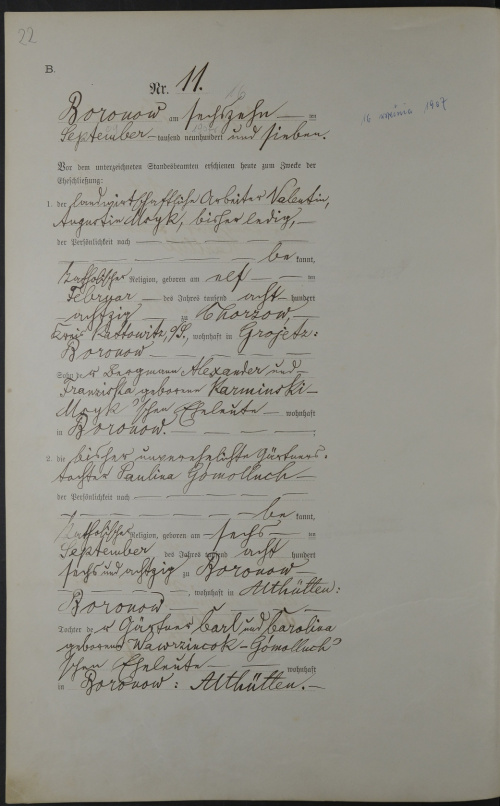 22
B.
Nr. 11.
Boronow am sechszehn ten
September tausend neunhundert und sieben.
16 września 1907
Vor dem unterzeichneten Standesbeamten erschienen heute zum Zwecke der
Eheschließung:
1. der landwirtschaftliche Arbeiter Valentin,
Augustin Mogk, bisher ledig,
der Persönlichkeit nach
be kannt,
katholischer Religion, geboren am elf ten
Februar des Jahres tausend acht hundert
achtzig zu Chorzow,
Kreis Kattowitz, O/S., wohnhaft in Grojetz:
Boronow
Sohn der Bergmann Alexander und
Franziska geborene Karminski
Mogk'schen Eheleute wohnhaft
in Boronow.
2. die bisher unverehelichte Gärtners-
tochter Paulina Gomolluch
der Persönlichkeit nach
be kannt,
katholischer Religion, geboren am sechs ten
September des Jahres tausend acht hundert
sechs und achtzig zu Boronow
, wohnhaft in Althütten:
Boronow
Tochter der Gärtner Carl und Carolina
geborene Wawrzincok-Gomolluch'
schen Eheleute wohnhaft
in Boronow: Althütten.